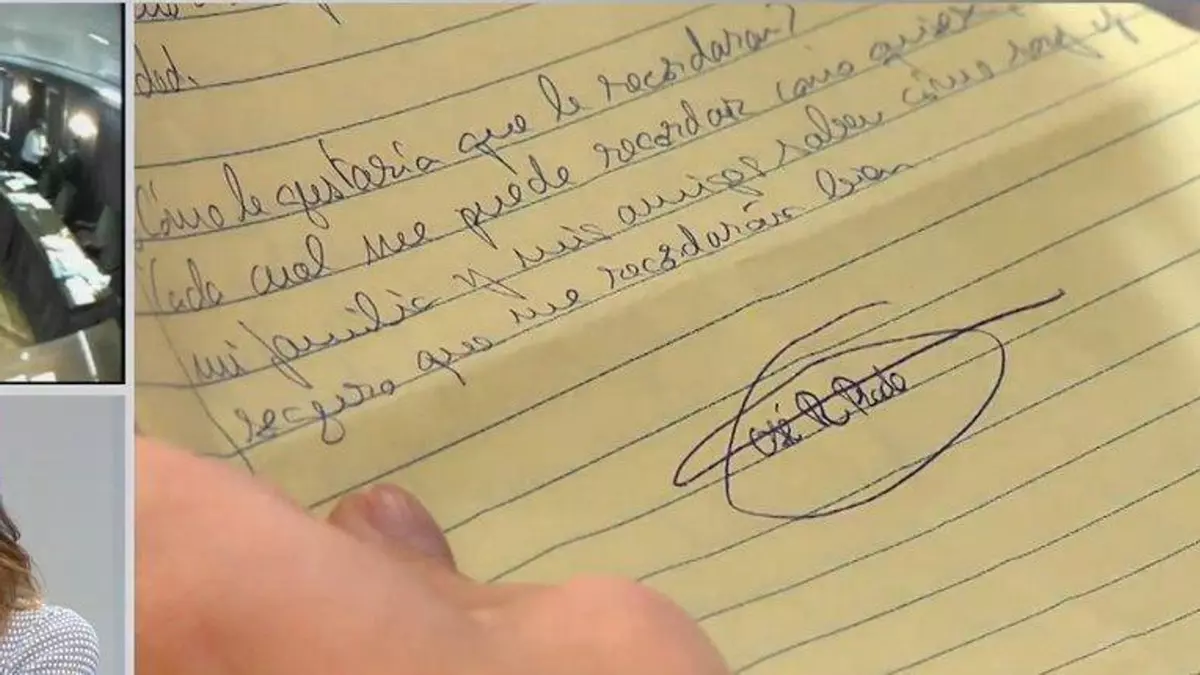 dad.
Cómo le gustaría que le recordaran?
Cada cual me puede recordar como quiera
mi familia y mis amigos saben cómo soy y
seguro que me recordarán bien